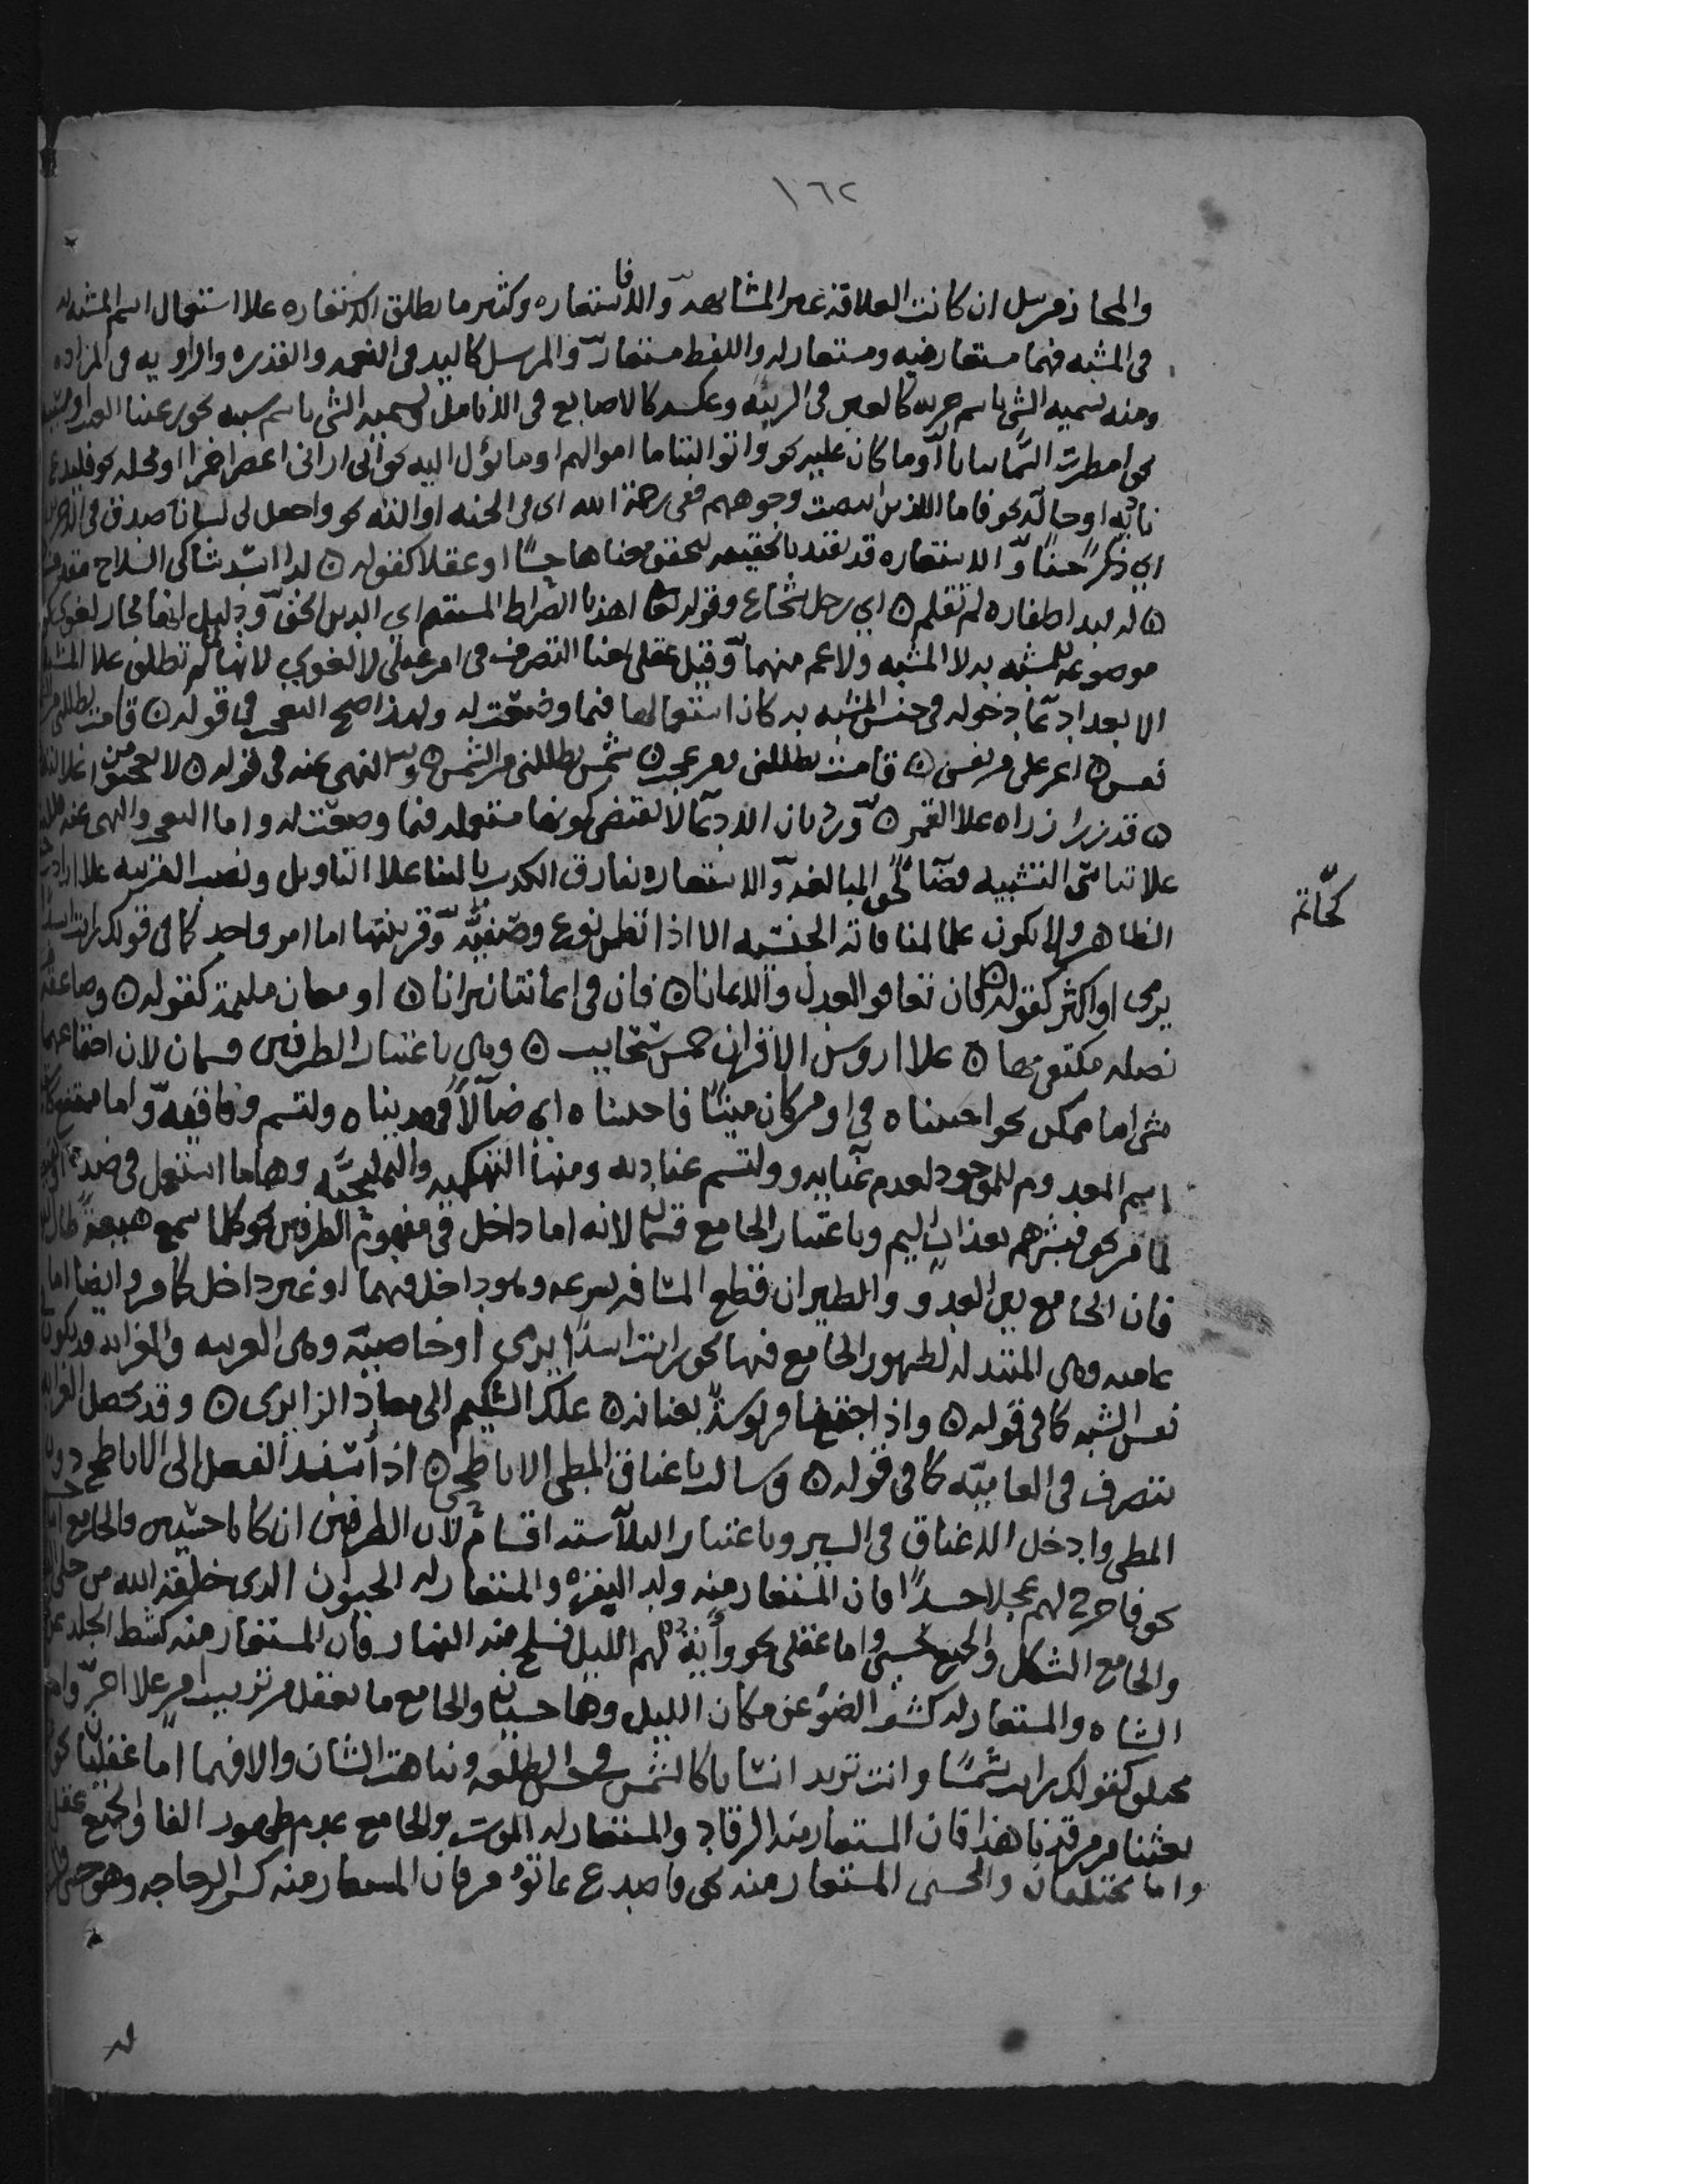 ١٦٢
والمجاز مرسل ان كانت العلاقة غير المشابهة والا فاستعاره وكثير ما يطلق الاستعاره علا استعمال اسم المشبه به
في المشبه فهما مستعار منه ومستعار له واللفظ مستعار والمرسل كاليد في النعمه والقدره والراويه في المزاده
ومنه تسميه الشي باسم جزئه كالعين في الربيئه وعكسه كالاصابع في الانامل وتسميه الشي باسم سببه نحو رعينا الغيث او مسببه
نحو امطرت السماء نباتا او ما كان عليه نحو واتوا اليتاما اموالهم او ما يؤل اليه نحو اني اراني اعصر خمرا او محله نحو فليدع
ناديه او حاله نحو فاما الذين ابيضت وجوههم ففي رحمة الله اي في الجنه او الته نحو واجعل لي لسان صدق في الاخرين
اي ذكرا حسنا والاستعاره قد تقيد بالتحقيقيه لتحقق معناها حسا او عقلا كقوله ۞ لدا اسد شاكي السلاح مقذف
۞ له لبد اظفاره لم تقلم ۞ اي رجل شجاع وقوله تعا اهدنا الصراط المستقيم اي الدين الحق ودليل انها مجاز لغوي كونها
موضوعه للمشبه به لا المشبه ولا اعم منهما وقيل عقلي بمعنا التصرف في امر عقلي لا لغوي لانها لم تطلق علا المشبه
الا بعد ادعاء دخوله في جنس المشبه به كان استعمالها فيما وضعت له ولهذا صح التعجب في قوله ۞ قامت تظللني من الشمس
نفس ۞ اعز علي من نفسي ۞ قامت تظللني ومن عجب ۞ شمس تظللني من الشمس ۞ والنهي عنه في قوله ۞ لا تعجبوا من بلا غلالته
۞ قد زر ازراره علا القمر ۞ ورد بان الادعا لا يقتضي كونها مستعمله فيما وضعت له واما التعجب والنهي عنه فللبنا
علا تناسي التشبيه قضاء لحق المبالغه والاستعاره تفارق الكذب بالبنا علا التاويل ونصب القرينه علا اراده خلاف
كحاتم
الظاهر ولا تكون علما لمنافاته الجنسيه الا اذا تضمن نوع وصفيه وقرينتها اما امر واحد كما في قولك رايت اسدا
يرمي او اكثر كقوله ۞ فان تعافوا العدل والايمانا ۞ فان في ايماننا نيرانا ۞ او معان ملتئمه كقوله ۞ وصاعقه من
نصله منكفي بها ۞ علا اروس الاقران خمس سحايب ۞ وهي باعتبار الطرفين قسمان لان اجتماعهما في
شي اما ممكن نحو احييناه في او من كان ميتا فاحييناه اي ضالا فهديناه ولتسم وفاقيه واما ممتنع كاستعاره
اسم المعدوم للموجود لعدم غنايه ولتسم عناديه ومنها التهكميه والتمليحيه وهما ما استعمل في ضده او نقيضه
لما مر نحو فبشرهم بعذاب اليم وباعتبار الجامع قسمان لانه اما داخل في مفهوم الطرفين نحو كلما سمع هيعة طار اليها
فان الجامع بين العدو والطيران قطع المسافه بسرعه وهو داخل فيهما او غير داخل كما مر وايضا اما
عاميه وهي المبتذله لظهور الجامع فيها نحو رايت اسدا يرمي او خاصيه وهي الغريبه والغرابه قد تكون في
نفس الشبه كما في قوله ۞ واذا احتبى قربوسه بعنانه ۞ علك الشكيم الى معاد الزايري ۞ وقد تحصل الغرابه
بتصرف في العاميه كما في قوله ۞ وسالت باعناق المطي الاباطح ۞ اذ اسند الفعل الى الاباطح دون
المطي وادخل الاعناق في السير وباعتبار الثلاثه سته اقسام لان الطرفين ان كانا حسيين والجامع اما حسي
نحو فاخرج لهم عجلا جسدا فان المستعار منه ولد البقره والمستعار له الحيوان الذي خلقه الله من حلي القبط
والجامع الشكل والجميع حسي واما عقلي نحو وأية لهم الليل نسلخ منه النهار فان المستعار منه كشط الجلد عن
الشاه والمستعار له كشف الضوء عن مكان الليل وهما حسيان والجامع ما يعقل من ترتيب امر علا اخر واما
مختلف كقولك رايت شمسا وانت تريد انسانا كالشمس في حسن الطلعه ونباهة الشان والا فهما اما عقليان نحو من
بعثنا من مرقدنا هذا فان المستعار منه الرقاد والمستعار له الموت والجامع عدم ظهور الفعل والجميع عقلي
واما مختلفان والحسي المستعار منه نحو فاصدع بما تؤمر فان المستعار منه كسر الزجاجه وهو حسي
له